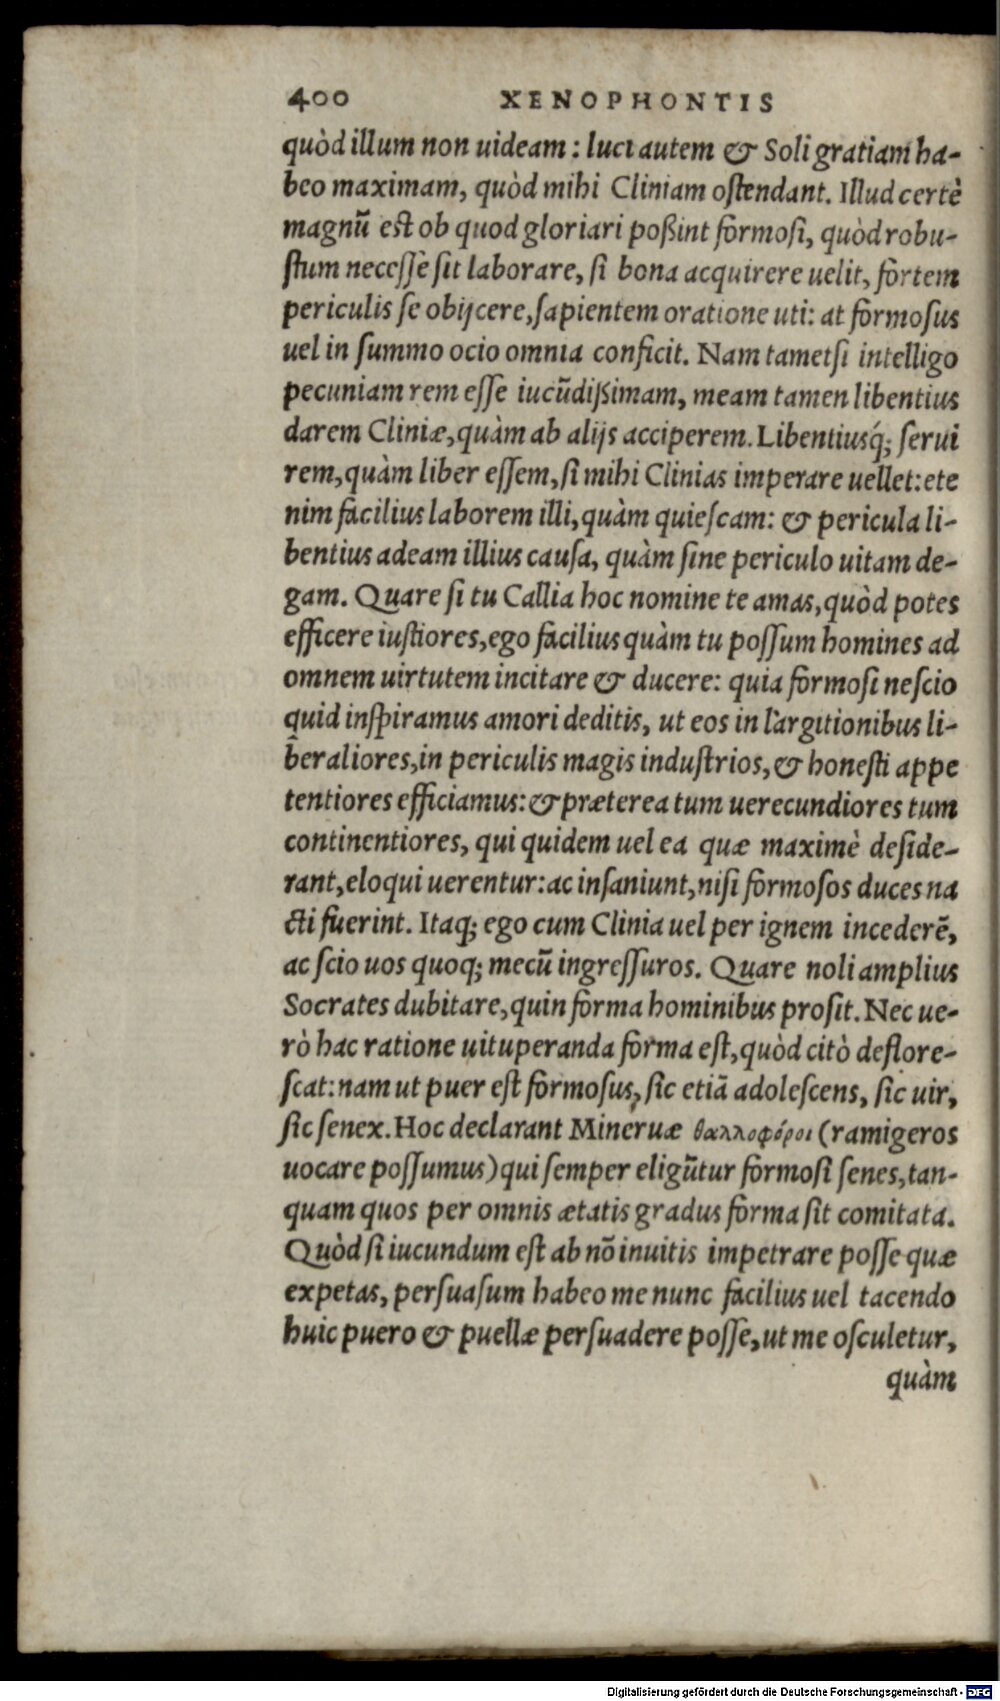 400 XENOPHONTIS
quòd illum non uideam: luci autem & Soli gratiam ha-
beo maximam, quòd mihi Cliniam oſtendant. Illud certè
magnũ eſt ob quod gloriari poßint formoſi, quòd robu-
ſtum neceſſe ſit laborare, ſi bona acquirere uelit, fortem
periculis ſe obijcere, ſapientem oratione uti: at formoſus
uel in ſummo ocio omnia conficit. Nam tametſi intelligo
pecuniam rem eſſe iucũdißimam, meam tamen libentius
darem Cliniæ, quàm ab alijs acciperem. Libentiusq́; ſerui
rem, quàm liber eſſem, ſi mihi Clinias imperare uellet: ete
nim facilius laborem illi, quàm quieſcam: & pericula li-
bentius adeam illius cauſa, quàm ſine periculo uitam de-
gam. Quare ſi tu Callia hoc nomine te amas, quòd potes
efficere iuſtiores, ego facilius quàm tu poſſum homines ad
omnem uirtutem incitare & ducere: quia formoſi neſcio
quid inſpiramus amori deditis, ut eos in largitionibus li-
beraliores, in periculis magis induſtrios, & honeſti appe
tentiores efficiamus: & præterea tum uerecundiores tum
continentiores, qui quidem uel ea quæ maximè deſide-
rant, eloqui uerentur: ac inſaniunt, niſi formoſos duces na
cti fuerint. Itaq; ego cum Clinia uel per ignem incederẽ,
ac ſcio uos quoq; mecũ ingreſſuros. Quare noli amplius
Socrates dubitare, quin forma hominibus proſit. Nec ue-
rò hac ratione uituperanda forma eſt, quòd citò deflore-
ſcat: nam ut puer eſt formoſus, ſic etiã adoleſcens, ſic uir,
ſic ſenex. Hoc declarant Mineruæ θαλλοφόροι (ramigeros
uocare poſſumus) qui ſemper eligũtur formoſi ſenes, tan-
quam quos per omnis ætatis gradus forma ſit comitata.
Quòd ſi iucundum eſt ab nõ inuitis impetrare poſſe quæ
expetas, perſuaſum habeo me nunc facilius uel tacendo
huic puero & puellæ perſuadere poſſe, ut me oſculetur,
quàm
Digitalisierung gefördert durch die Deutsche Forschungsgemeinschaft - DFG